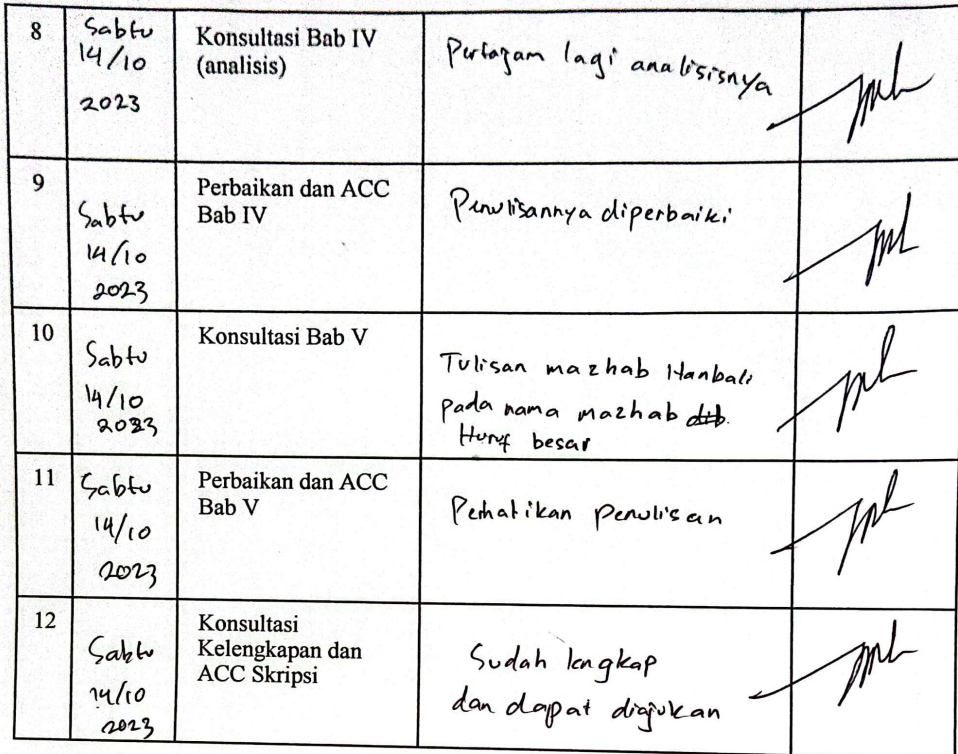 8
Sabtu
14/10
2023
Konsultasi Bab IV
(analisis)
Pertajam lagi analisisnya
9
Sabtu
14/10
2023
Perbaikan dan ACC
Bab IV
Penulisannya diperbaiki
10
Sabtu
14/10
2023
Konsultasi Bab V
Tulisan mazhab Hanbali
pada nama mazhab
Huruf besar
11
Sabtu
14/10
2023
Perbaikan dan ACC
Bab V
Perhatikan penulisan
12
Sabtu
14/10
2023
Konsultasi
Kelengkapan dan
ACC Skripsi
Sudah lengkap
dan dapat diajukan